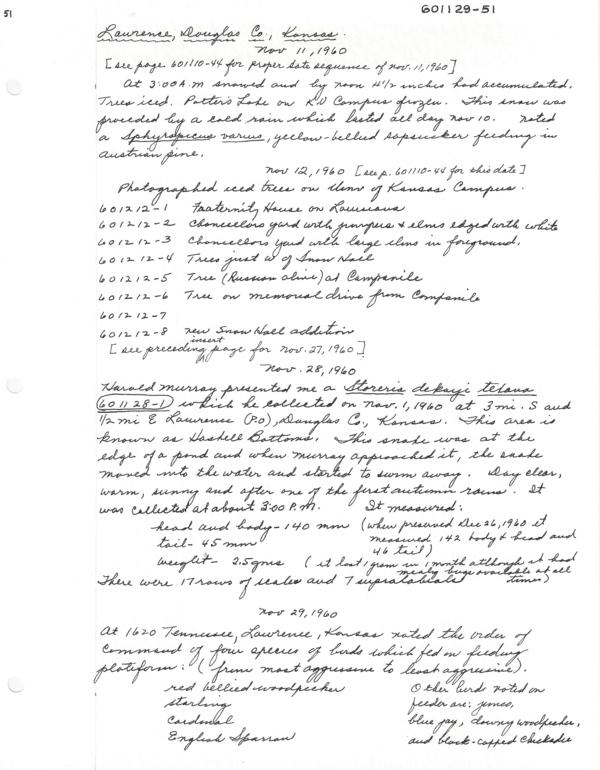 51
601129-51
Lawrence, Douglas Co., Kansas.
Nov 11, 1960
[see page 601110-44 for proper date sequence of nov. 11, 1960]
At 3:00 A.M snowed and by noon 4 1/2 inches had accumulated.
Trees iced. Potter's Lake on KU Campus frozen. This snow was
preceded by a cold rain which lasted all day nov 10. noted
a Sphyrapicus varius, yellow-bellied sapsucker feeding in
Austrian pine.
Nov 12, 1960 [see p. 601110-44 for this date]
Photographed iced trees on Univ of Kansas Campus.
601212-1 Fraternity House on Louisiana
601212-2 Chancellors yard with junipers & elms edged with white
601212-3 Chancellors yard with large elms in foreground.
601212-4 Trees just w of Snow Hall
601212-5 Tree (Russian olive) at Campanile
601212-6 Tree on memorial drive from Campanile
601212-7
601212-8 new Snow Hall addition
[see preceding insert page for nov. 27, 1960]
Nov. 28, 1960
Harold Murray presented me a Storeria dekayi texana
(601128-1) which he collected on Nov. 1, 1960 at 3 mi. S and
1/2 mi E Lawrence (P.O), Douglas Co., Kansas. This area is
known as Haskell Bottoms. This snake was at the
edge of a pond and when Murray approached it, the snake
moved into the water and started to swim away. Day clear,
warm, sunny and after one of the first autumn rains. It
was collected at about 3:00 P.M. It measured:
head and body - 140 mm (when preserved Dec 26, 1960 it
tail - 45 mm measured 142 body & head and
46 tail)
weight - 2.5 gms (it lost 1 gram in 1 month although it had
mealy bugs available at all
There were 17 rows of scales and 7 supralabials times)
Nov 29, 1960
At 1620 Tennessee, Lawrence, Kansas noted the order of
command of four species of birds which fed on feeding
platform: (from most aggressive to least aggressive).
red bellied woodpecker Other birds noted on
starling feeder are: juncos,
Cardinal blue jay, downy woodpecker,
English Sparrow and black-capped Chickadee